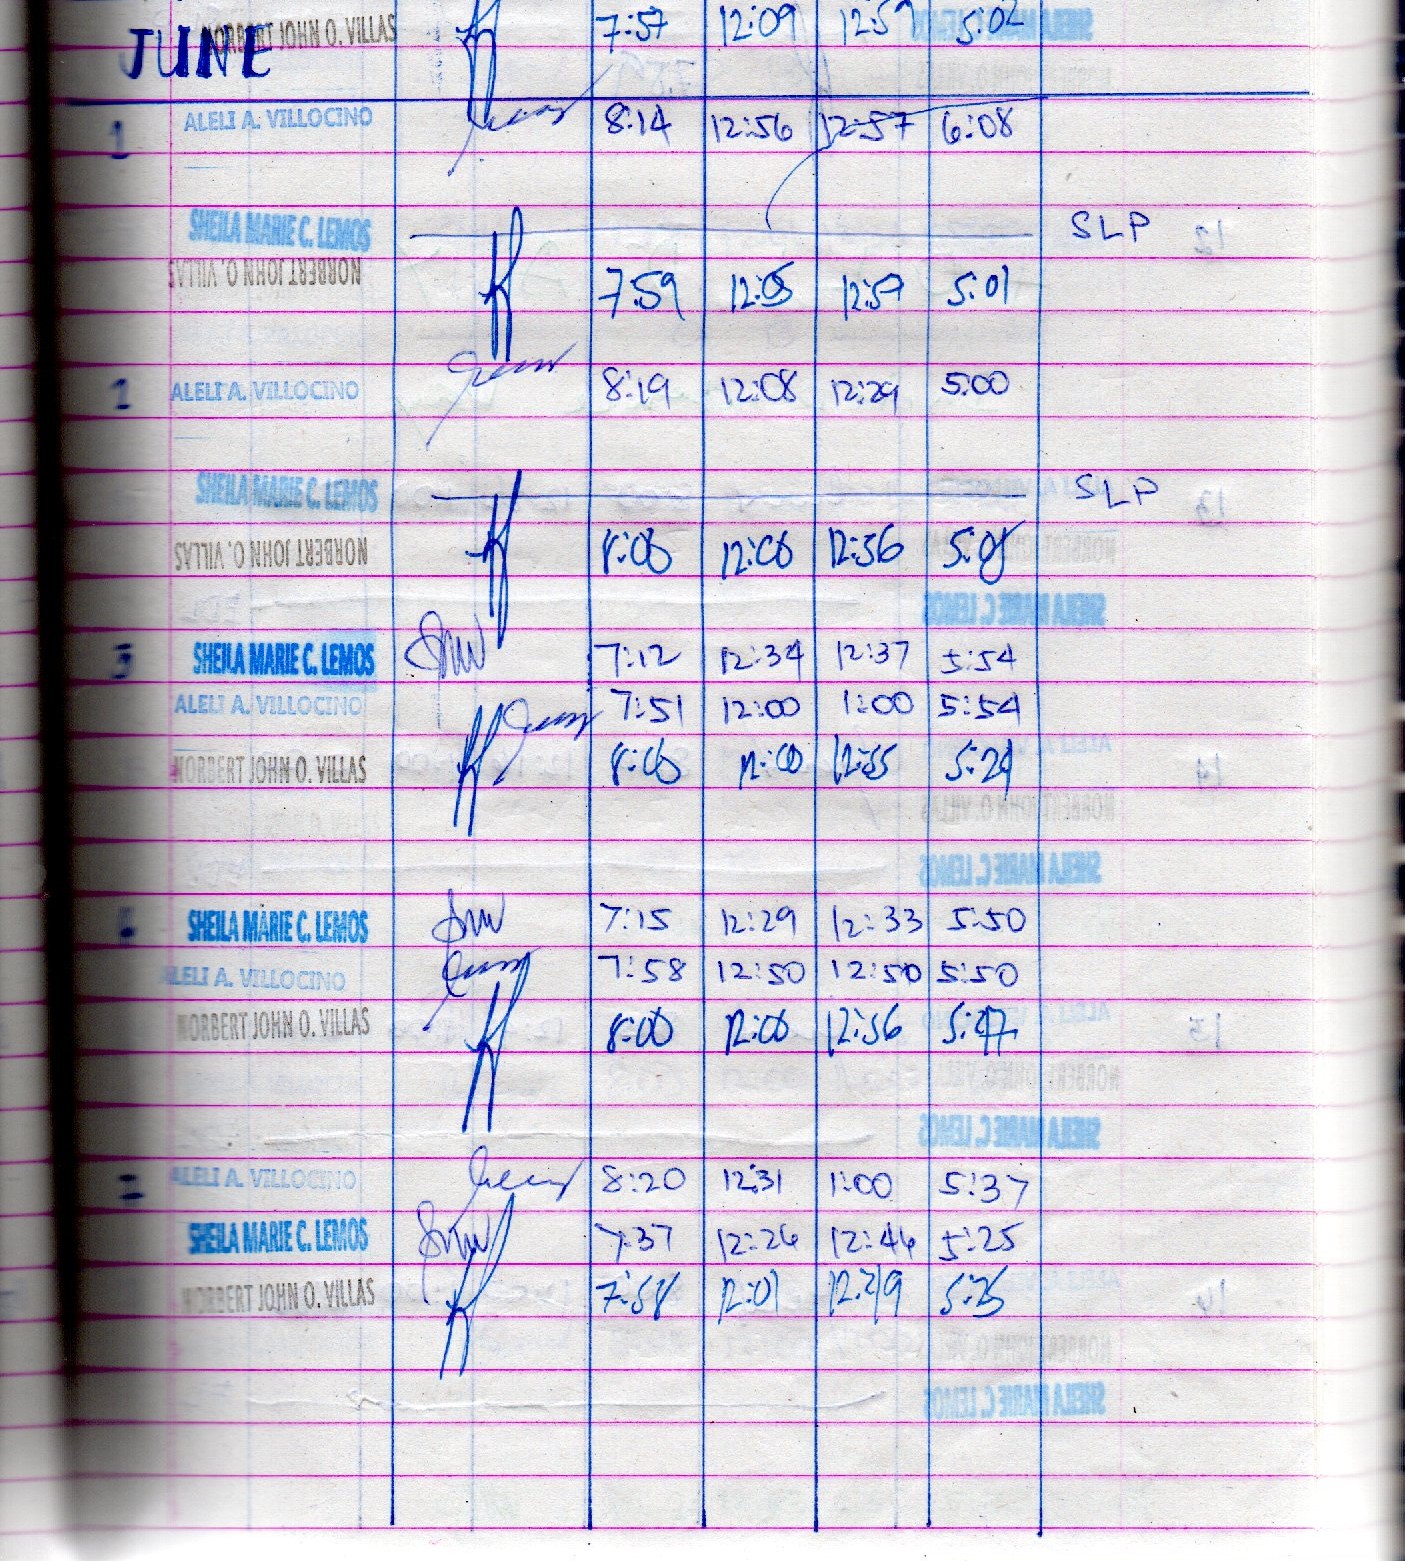 NORBERT JOHN O. VILLAS 7:57 12:09 12:59 5:02
JUNE
1 ALELI A. VILLOCINO 8:14 12:56 12:57 6:08
SHEILA MARIE C. LEMOS SLP
NORBERT JOHN O. VILLAS 7:59 12:05 12:59 5:01
ALELI A. VILLOCINO 8:19 12:08 12:29 5:00
SHEILA MARIE C. LEMOS SLP
NORBERT JOHN O. VILLAS 8:00 12:00 12:56 5:08
SHEILA MARIE C. LEMOS 7:12 12:34 12:37 5:54
ALELI A. VILLOCINO 7:51 12:00 1:00 5:54
NORBERT JOHN O. VILLAS 8:00 12:00 12:55 5:29
SHEILA MARIE C. LEMOS 7:15 12:29 12:33 5:50
ALELI A. VILLOCINO 7:58 12:50 12:50 5:50
NORBERT JOHN O. VILLAS 8:00 12:00 12:56 5:47
ALELI A. VILLOCINO 8:20 12:31 1:00 5:37
SHEILA MARIE C. LEMOS 7:37 12:26 12:46 5:25
NORBERT JOHN O. VILLAS 7:58 12:01 5:25